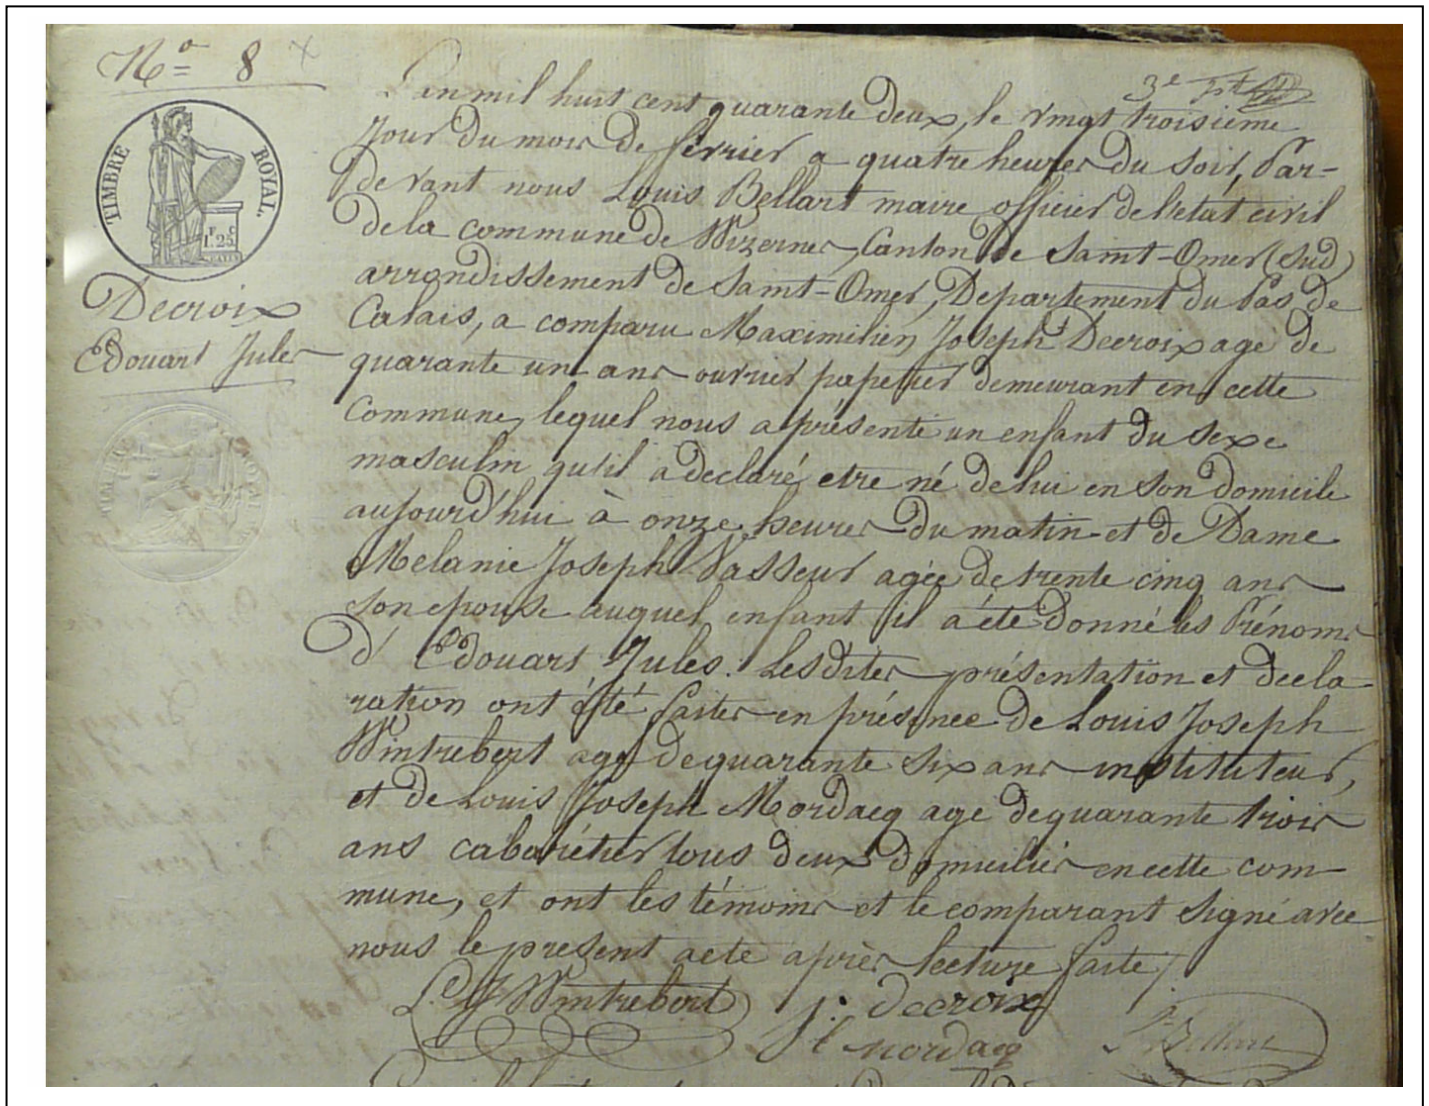 No= 8
3e
TIMBRE ROYAL.
F. C
1. 25
Decroix
Edouart Jules
L'an mil huit cent quarante deux, le vingt troisieme
Jour du mois de fevrier a quatre heures du soir, Par-
devant nous Louis Bellart maire officier de l'etat civil
de la commune de Wizernes, Canton de Saint-Omer (Sud)
arrondissement de Saint-Omer, Departement du Pas de
Calais, a comparu Maximilien Joseph Decroix age de
quarante un ans ouvrier papetier demeurant en cette
Commune, lequel nous a présenté un enfant du sexe
masculin qu'il a declaré etre né de lui en son domicile
aujourd'hui à onze heures du matin et de Dame
Melanie Joseph Vasseur agée de trente cinq ans
son epouse auquel enfant il a été donné les Prénoms
d' Edouart Jules. Lesdites présentation et decla
ration ont été faites en présence de Louis Joseph
Wintrebert age de quarante six ans instituteur,
et de Louis Joseph Mordacq age de quarante trois
ans cabarétier tous deux domiciliés en cette com-
mune, et ont les témoins et le comparant signé avec
nous le present acte après lecture faite /
L. J Wintrebert j: decroix
l mordacq L. Bellart